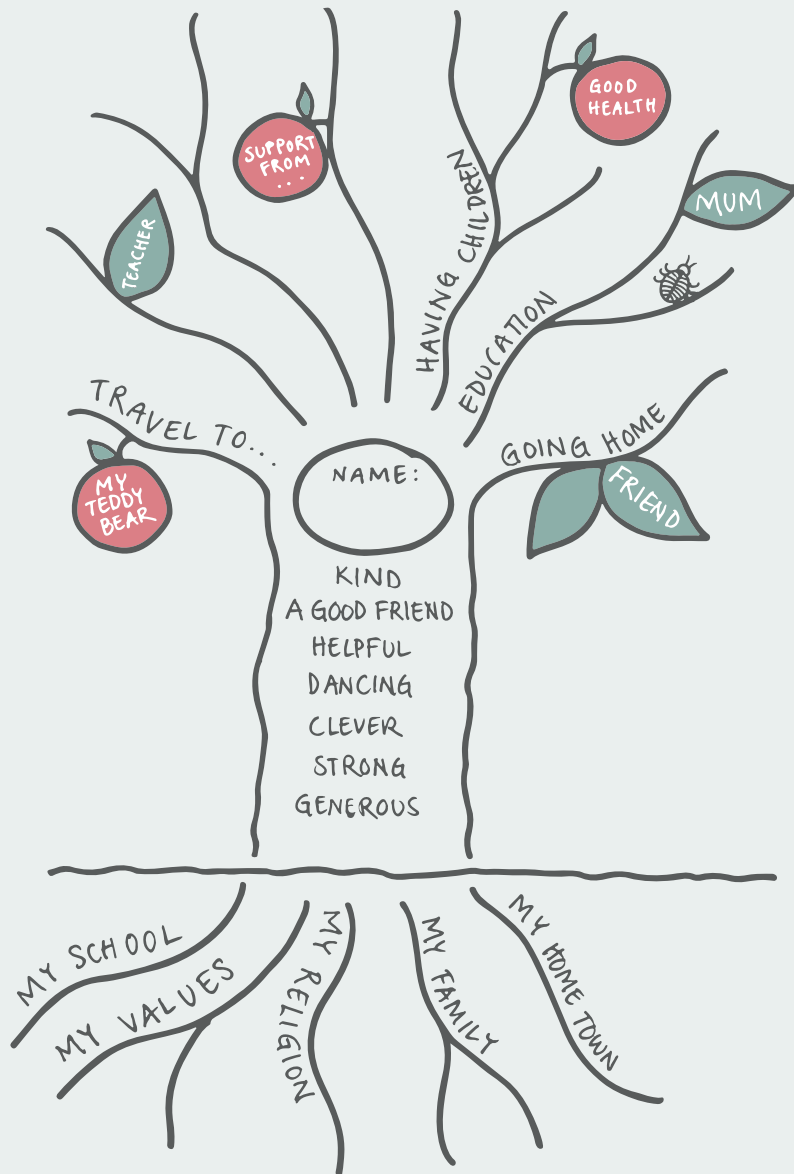 GOOD
HEALTH
SUPPORT
FROM
...
MUM
TEACHER
HAVING CHILDREN
EDUCATION
TRAVEL TO...
GOING HOME
MY
TEDDY
BEAR
FRIEND
NAME:
KIND
A GOOD FRIEND
HELPFUL
DANCING
CLEVER
STRONG
GENEROUS
MY SCHOOL
MY VALUES
MY RELIGION
MY FAMILY
MY HOME TOWN